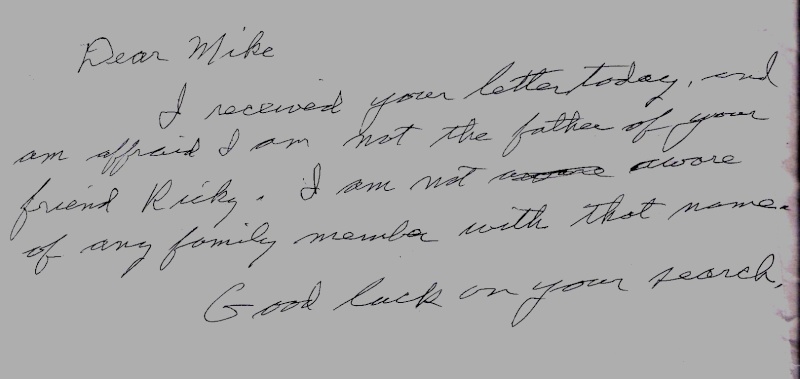 Dear Mike
I received your letter today, and
am affraid I am not the father of your
friend Ricky. I am not aware
of any family member with that name.
Good luck on your search.